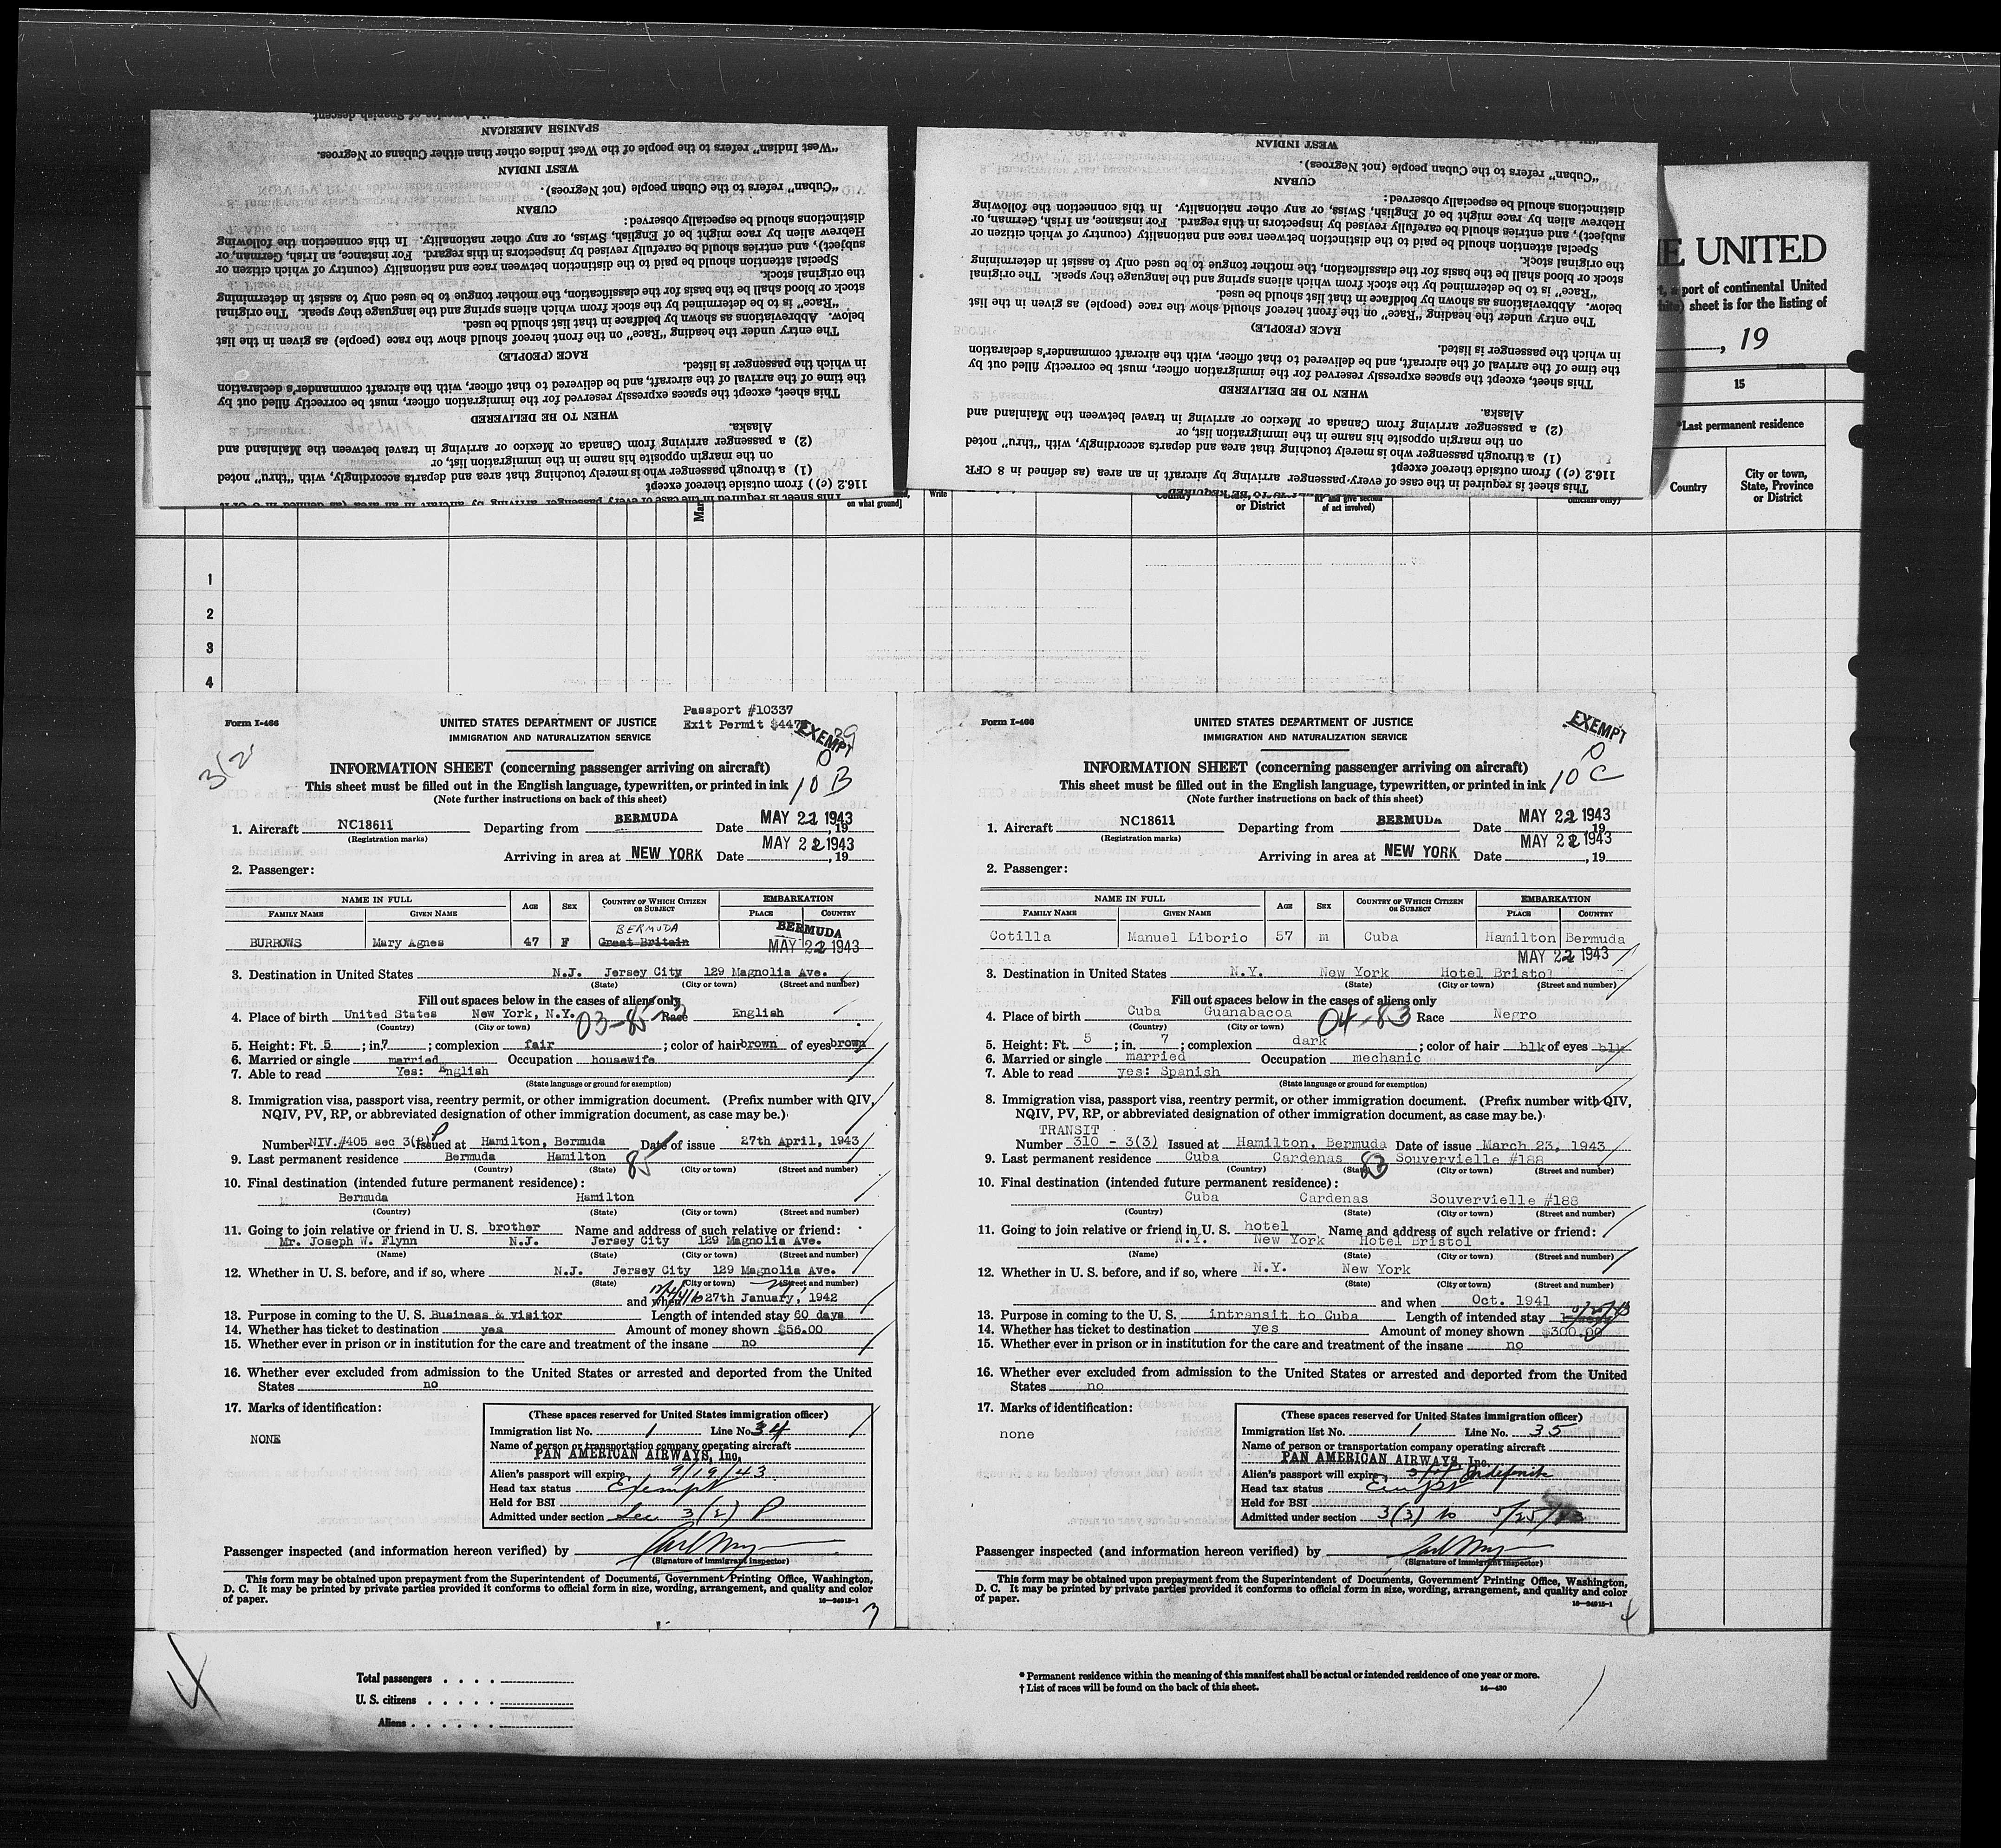 SPANISH AMERICAN
"West Indian" refers to the people of the West Indies other than either Cubans or Negroes.
WEST INDIAN
"Cuban" refers to the Cuban people (not Negroes).
CUBAN
distinctions should be especially observed:
Hebrew alien by race might be of English, Swiss, or any other nationality. In this connection the following
subject), and entries should be carefully revised by inspectors in this regard. For instance, an Irish, German, or
Special attention should be paid to the distinction between race and nationality (country of which citizen or
the original stock.
stock or blood shall be the basis for the classification, the mother tongue to be used only to assist in determining
"Race" is to be determined by the stock from which aliens spring and the language they speak. The original
below. Abbreviations as shown by boldface in that list should be used.
The entry under the heading "Race" on the front hereof should show the race (people) as given in the list
RACE (PEOPLE)
in which the passenger is listed.
the time of the arrival of the aircraft, and be delivered to that officer, with the aircraft commander's declaration
This sheet, except the spaces expressly reserved for the immigration officer, must be correctly filled out by
WHEN TO BE DELIVERED
Alaska.
(2) a passenger arriving from Canada or Mexico or arriving in travel between the Mainland and
on the margin opposite his name in the immigration list, or
(1) a through passenger who is merely touching that area and departs accordingly, with "thru" noted
116.2 (c)) from outside thereof except
This sheet is required in the case of every passenger arriving by aircraft in an area (as defined in 8 CFR
WEST INDIAN
"Cuban" refers to the Cuban people (not Negroes).
CUBAN
distinctions should be especially observed:
Hebrew alien by race might be of English, Swiss, or any other nationality. In this connection the following
subject), and entries should be carefully revised by inspectors in this regard. For instance, an Irish, German, or
Special attention should be paid to the distinction between race and nationality (country of which citizen or
the original stock.
stock or blood shall be the basis for the classification, the mother tongue to be used only to assist in determining
"Race" is to be determined by the stock from which aliens spring and the language they speak. The original
below. Abbreviations as shown by boldface in that list should be used.
The entry under the heading "Race" on the front hereof should show the race (people) as given in the list
RACE (PEOPLE)
in which the passenger is listed.
the time of the arrival of the aircraft, and be delivered to that officer, with the aircraft commander's declaration
This sheet, except the spaces expressly reserved for the immigration officer, must be correctly filled out by
WHEN TO BE DELIVERED
Alaska.
(2) a passenger arriving from Canada or Mexico or arriving in travel between the Mainland and
on the margin opposite his name in the immigration list, or
(1) a through passenger who is merely touching that area and departs accordingly, with "thru" noted
116.2 (c)) from outside thereof except
This sheet is required in the case of every passenger arriving by aircraft in an area (as defined in 8 CFR
UNITED
port of continental United
sheet is for the listing of
, 19
15
*Last permanent residence
Country
City or town, State, Province or District
on what ground]
Write
or District
of act involved)
1
2
3
4
Passport #10337
Form I-466
UNITED STATES DEPARTMENT OF JUSTICE
Exit Permit
EXEMPT
IMMIGRATION AND NATURALIZATION SERVICE
312
INFORMATION SHEET (concerning passenger arriving on aircraft)
This sheet must be filled out in the English language, typewritten, or printed in ink
10 B
(Note further instructions on back of this sheet)
1. Aircraft NC18611 Departing from BERMUDA Date MAY 22 1943, 19
(Registration marks)
Arriving in area at NEW YORK Date MAY 22 1943, 19
2. Passenger:
NAME IN FULL AGE SEX COUNTRY OF WHICH CITIZEN OR SUBJECT EMBARKATION
FAMILY NAME GIVEN NAME PLACE COUNTRY
BURROWS Mary Agnes 47 F BERMUDA Great Britain BERMUDA
MAY 22 1943
3. Destination in United States N.J. Jersey City 129 Magnolia Ave.
(State) (City or town) (Street and number)
Fill out spaces below in the cases of aliens only
4. Place of birth United States New York, N.Y. 03-85-3 Race English
(Country) (City or town)
5. Height: Ft. 5; in. 7; complexion fair; color of hair brown of eyes brown
6. Married or single married Occupation housewife
7. Able to read Yes: English
(State language or ground for exemption)
8. Immigration visa, passport visa, reentry permit, or other immigration document. (Prefix number with QIV,
NQIV, PV, RP, or abbreviated designation of other immigration document, as case may be.)
Number NIV.#405 sec 3(2) Issued at Hamilton, Bermuda Date of issue 27th April, 1943
9. Last permanent residence Bermuda Hamilton 85
(Country) (State) (City or town) (Street and number)
10. Final destination (intended future permanent residence):
Bermuda Hamilton
(Country) (State) (City or town) (Street and number)
11. Going to join relative or friend in U. S. brother Name and address of such relative or friend:
Mr. Joseph W. Flynn N.J. Jersey City 129 Magnolia Ave.
(Name) (State) (City or town) (Street and number)
12. Whether in U. S. before, and if so, where N.J. Jersey City 129 Magnolia Ave.
(State) (City or town) (Street and number)
and when 27th January, 1942
13. Purpose in coming to the U. S. Business & visitor Length of intended stay 60 days
14. Whether has ticket to destination yes Amount of money shown $56.00
15. Whether ever in prison or in institution for the care and treatment of the insane no
16. Whether ever excluded from admission to the United States or arrested and deported from the United
States no
17. Marks of identification:
NONE
(These spaces reserved for United States immigration officer)
Immigration list No. 1 Line No. 34
Name of person or transportation company operating aircraft
PAN AMERICAN AIRWAYS, Inc.
Alien's passport will expire 9/19/43
Head tax status Exempt
Held for BSI
Admitted under section Sec 3(2) P
Passenger inspected (and information hereon verified) by
(Signature of immigrant inspector)
This form may be obtained upon prepayment from the Superintendent of Documents, Government Printing Office, Washington,
D. C. It may be printed by private parties provided it conforms to official form in size, wording, arrangement, and quality and color
of paper.
16—24915-1
3
Form I-466
UNITED STATES DEPARTMENT OF JUSTICE
EXEMPT
IMMIGRATION AND NATURALIZATION SERVICE
INFORMATION SHEET (concerning passenger arriving on aircraft)
This sheet must be filled out in the English language, typewritten, or printed in ink
10 C
(Note further instructions on back of this sheet)
1. Aircraft NC18611 Departing from BERMUDA Date MAY 22 1943, 19
(Registration marks)
Arriving in area at NEW YORK Date MAY 22 1943, 19
2. Passenger:
NAME IN FULL AGE SEX COUNTRY OF WHICH CITIZEN OR SUBJECT EMBARKATION
FAMILY NAME GIVEN NAME PLACE COUNTRY
Cotilla Manuel Liborio 57 m Cuba Hamilton Bermuda
MAY 22 1943
3. Destination in United States N.Y. New York Hotel Bristol
(State) (City or town) (Street and number)
Fill out spaces below in the cases of aliens only
4. Place of birth Cuba Guanabacoa 04-83 Race Negro
(Country) (City or town)
5. Height: Ft. 5; in. 7; complexion dark; color of hair blk of eyes blk
6. Married or single married Occupation mechanic
7. Able to read yes: Spanish
(State language or ground for exemption)
8. Immigration visa, passport visa, reentry permit, or other immigration document. (Prefix number with QIV,
NQIV, PV, RP, or abbreviated designation of other immigration document, as case may be.)
TRANSIT
Number 310 - 3(3) Issued at Hamilton, Bermuda Date of issue March 23, 1943
9. Last permanent residence Cuba Cardenas 83 Souvervielle #188
(Country) (State) (City or town) (Street and number)
10. Final destination (intended future permanent residence):
Cuba Cardenas Souvervielle #188
(Country) (State) (City or town) (Street and number)
11. Going to join relative or friend in U. S. hotel Name and address of such relative or friend:
N.Y. New York Hotel Bristol
(Name) (State) (City or town) (Street and number)
12. Whether in U. S. before, and if so, where N.Y. New York
(State) (City or town) (Street and number)
and when Oct. 1941
13. Purpose in coming to the U. S. intransit to Cuba Length of intended stay
14. Whether has ticket to destination yes Amount of money shown $300.00
15. Whether ever in prison or in institution for the care and treatment of the insane no
16. Whether ever excluded from admission to the United States or arrested and deported from the United
States no
17. Marks of identification:
none
(These spaces reserved for United States immigration officer)
Immigration list No. 1 Line No. 35
Name of person or transportation company operating aircraft
PAN AMERICAN AIRWAYS, Inc.
Alien's passport will expire Indefinite
Head tax status Exempt
Held for BSI
Admitted under section 3(3) to 5/25/43
Passenger inspected (and information hereon verified) by
(Signature of immigrant inspector)
This form may be obtained upon prepayment from the Superintendent of Documents, Government Printing Office, Washington,
D. C. It may be printed by private parties provided it conforms to official form in size, wording, arrangement, and quality and color
of paper.
16—24915-1
4
4
Total passengers . . . .
U. S. citizens . . . . .
Aliens . . . . . .
* Permanent residence within the meaning of this manifest shall be actual or intended residence of one year or more.
† List of races will be found on the back of this sheet.
14—430